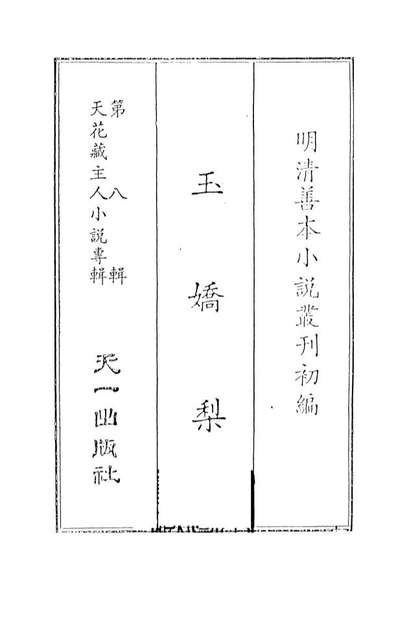 明清善本小說叢刊初編
玉嬌梨
第八輯
天花藏主人小說專輯
天一出版社